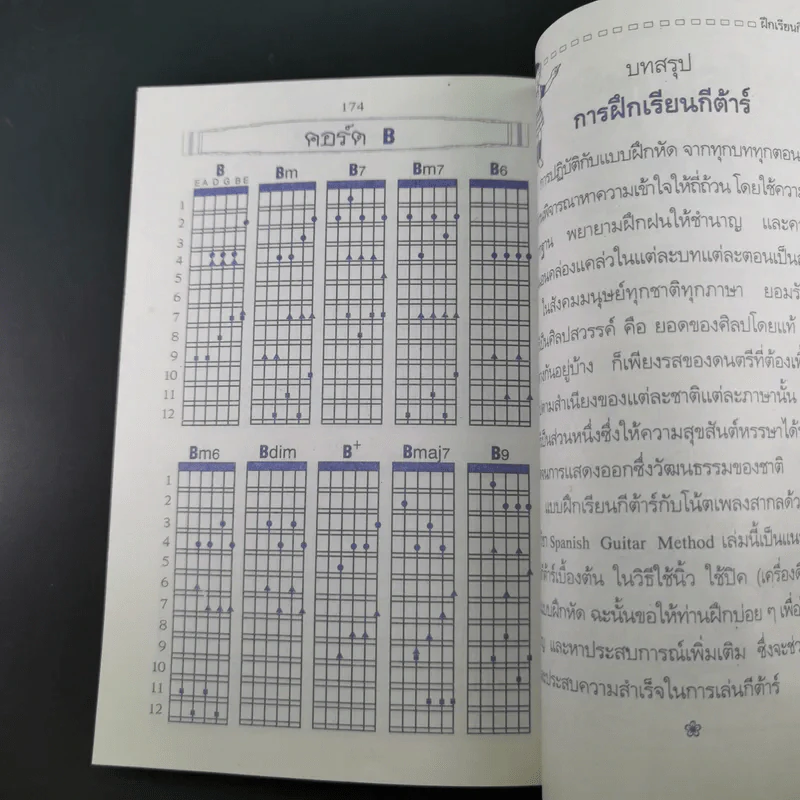 174
คอร์ด B
B Bm B7 Bm7 B6
E A D G B E
1
2
3
4
5
6
7
8
9
10
11
12
Bm6 Bdim B+ Bmaj7 B9
1
2
3
4
5
6
7
8
9
10
11
12
บทสรุป
การฝึกเรียนกีต้าร์
การปฏิบัติกับแบบฝึกหัด จากทุกบททุกตอน
พิจารณาหาความเข้าใจให้ถี่ถ้วน
พยายามฝึกฝนให้ชำนาญ
คล่องแคล่วในแต่ละบทแต่ละตอนเป็น
ในสังคมมนุษย์ทุกชาติทุกภาษา
เป็นศิลปสวรรค์ คือ ยอดของศิลปโดยแท้
กันอยู่บ้าง ก็เพียงรสของดนตรีที่ต้อง
ตามสำเนียงของแต่ละชาติแต่ละภาษานั้น
เป็นส่วนหนึ่งซึ่งให้ความสุขสันต์หรรษาได้
การแสดงออกซึ่งวัฒนธรรมของชาติ
แบบฝึกเรียนกีต้าร์กับโน้ตเพลงสากล
Spanish Guitar Method เล่มนี้เป็น
เบื้องต้น ในวิธีใช้นิ้ว ใช้ปิค
แบบฝึกหัด ฉะนั้นขอให้ท่านฝึกบ่อย ๆ เพื่อ
และหาประสบการณ์เพิ่มเติม ซึ่งจะ
ประสบความสำเร็จในการเล่นกีต้าร์